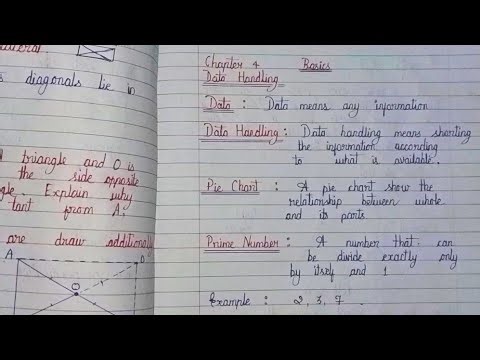 diagonals lie in
triangle and O is
the side opposite
Explain why
tant from A.
are draw additionall
A
O
Chapter 4 Basics
Data Handling
Data : Data means any information
Data Handling : Data handling means shorting
the information according
to what is available.
Pie Chart : A pie chart show the
relationship between whole
and its parts
Prime Number : A number that can
be divide exactly only
by itself and 1
Example : 2, 3, 7 .